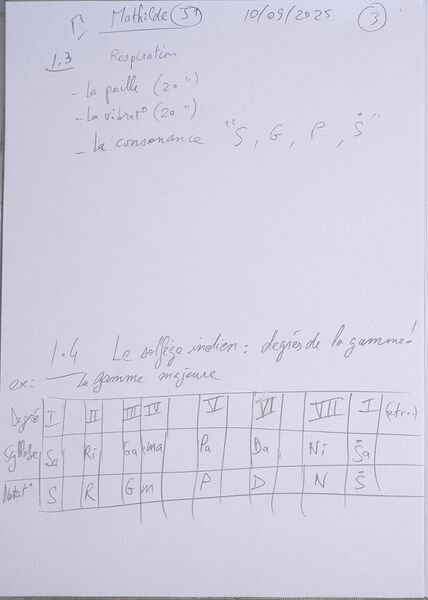 Mathilde 10/09/2025 3
1.3 Respiration
- La paille (20")
- La vibrat° (20")
- La consonance "S, G, P, Ṡ"
1.4 Le solfège indien : degrés de la gamme!
ex: La gamme majeure
Degré I II III IV V VI VII I (etc..)
Syllabe Sa Ri Ga ma Pa Da Ni Ṡa
Notat° S R G m P D N Ṡ